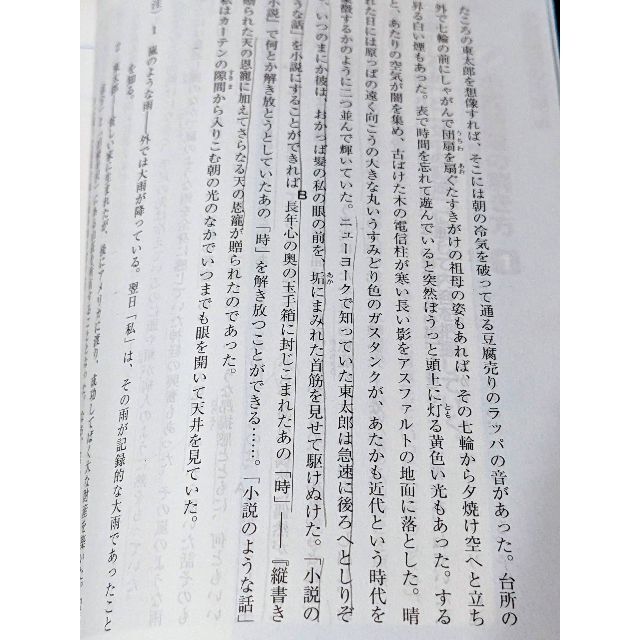 たころの東太郎を想像すれば、そこには朝の冷気を破って通る豆腐売りのラッパの音があった。台所の
外で七輪の前にしゃがんで団扇を扇ぐたすきがけの祖母の姿もあれば、その七輪から夕焼け空へと立ち
昇る白い煙もあった。表で時間を忘れて遊んでいると突然ぽうっと頭上に灯る黄色い光もあった。する
と、あたりの空気が闇を集め、古ぼけた木の電信柱が寒い長い影をアスファルトの地面に落とした。晴
れた日には原っぱの遠く向こうの大きな丸いうすみどり色のガスタンクが、あたかも近代という時代を
象徴するかのように二つ並んで輝いていた。ニューヨークで知っていた東太郎は急速に後ろへとしりぞ
き、いつのまにか彼は、おかっぱ髪の私の眼の前を、垢にまみれた首筋を見せて駆けぬけた。「小説の
ような話」を小説にすることができれば、長年心の奥の玉手箱に封じこまれたあの「時」――『縦書き
小説』で何とか解き放とうとしていたあの「時」を解き放つことができる……。「小説のような話」
贈られた天の恩寵に加えてさらなる天の恩寵が贈られたのであった。
私はカーテンの隙間から入りこむ朝の光のなかでいつまでも眼を開いて天井を見ていた。
B
（注）1 嵐のような雨――外では大雨が降っている。翌日「私」は、その雨が記録的な大雨であったこと
を知る。
2 東太郎――貧しい家に生まれたが、後にアメリカに渡り、成功してばく大な財産を築いた